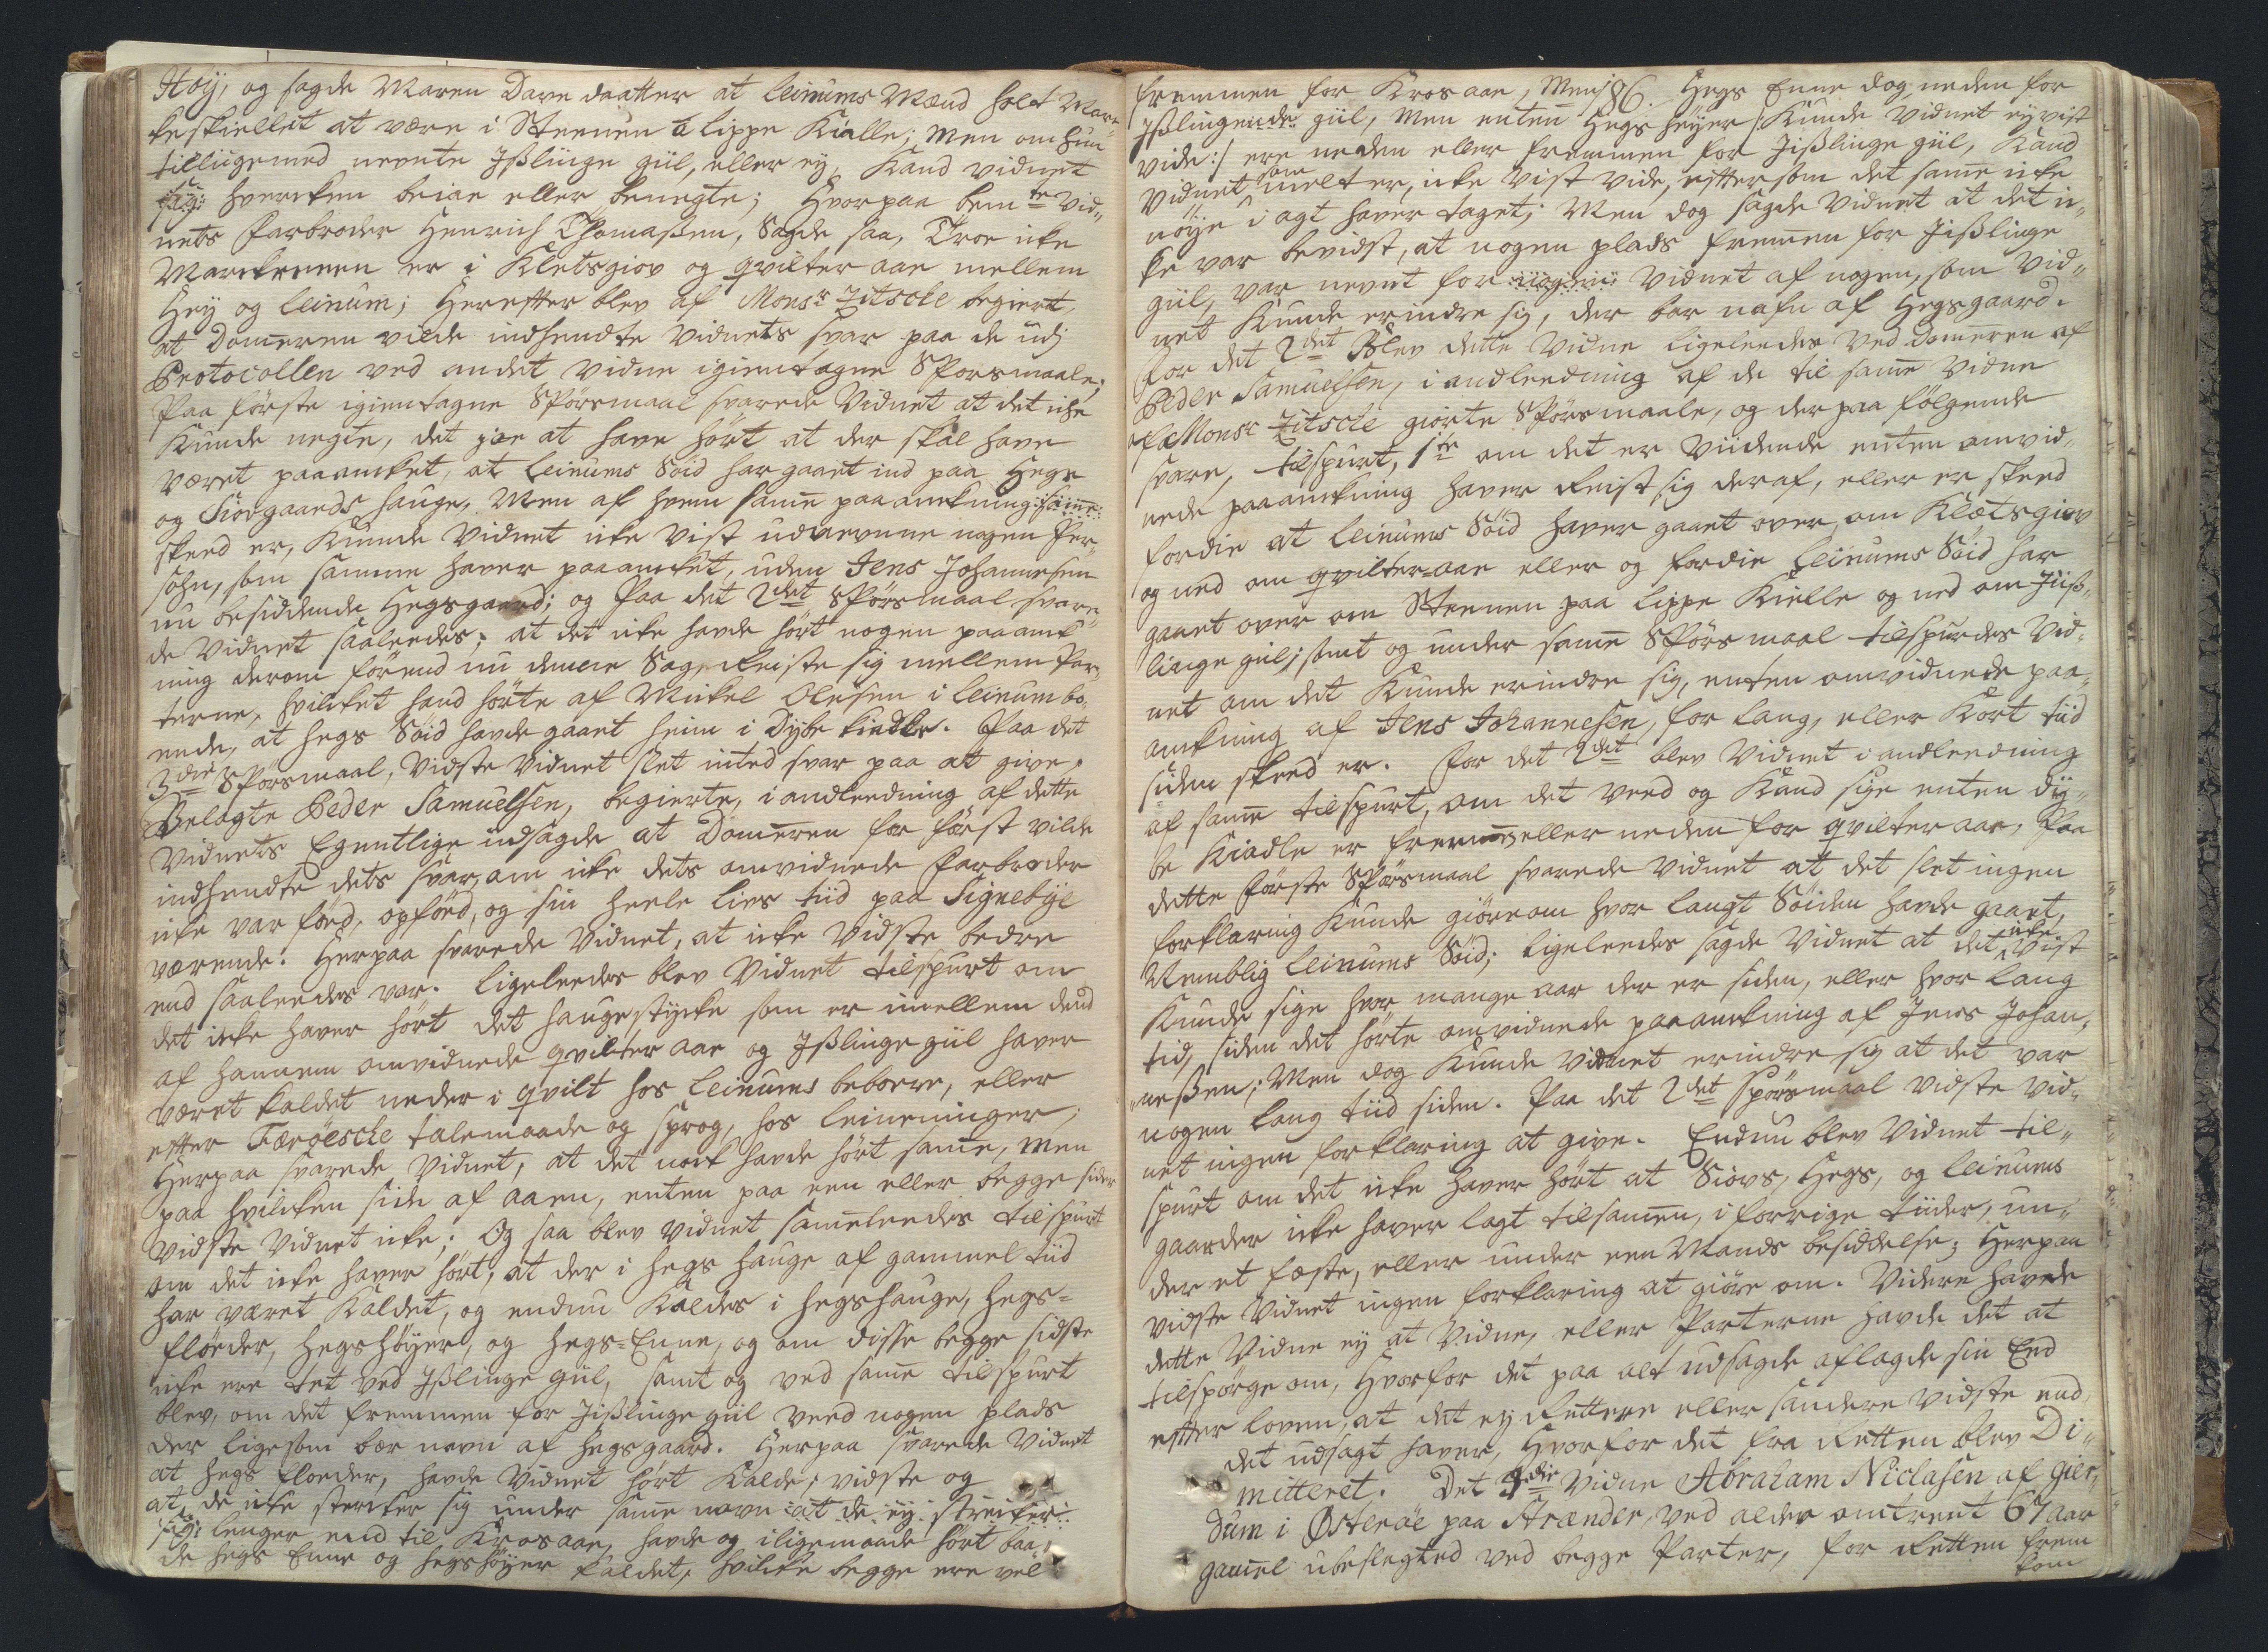 Høÿ, og sagde Maren Dave daatter at Leinums Mænd holt Mar¬
keskiellet at være i Steenen å lippe Kialle; Men om hun
tilligemed nevnte Jßlinge giil, eller eÿ, Kand vidnet
hvercken beiae eller benegte; Hvorpaa bem:te vid¬
nets farbroder Henrich Thomaßen, Sagde saa, Troe icke
Marckreenen er i Kletsgiov og qvilter aae mellem
Heÿ og Leinum; Herefter blev af Monsr Zitscke begiert,
at Dom̅eren vilde indhendte vidnets svar paa de udj
Protocollen ved andet vidne igientagne Sporsmaale;
Paa første igientagne Spørsmaal svarede Vidnet at det icke
Kunde negte, det joe at have hørt at der skal have
været paaancket, at Leinums Søid har gaaet ind paa Hegs
og Siovgaards hauge, Men af hvem sam̅e paaanckning
skeed er, Kunde Vidnet icke vist udnevnne nogen Per¬
sohn, som samme haver paaancket, uden Jens Johannesen
nu besiddende Hegsgaard; og Paa det 2det Spørsmaal svare¬
de Vidnet saaledes; at det icke havde hørt nogen paaanck¬
ning derom førend nu denne Sag reiste sig mellem Par¬
terne, hvilcket hand hørte af Mickel Olesen i Leinum bo¬
ende, at Hegs Søid havde gaaet heim i Dÿbe kiedle. Paa det
3die Spørsmaal, vidste Vidnet slet inted svar paa at give.
Belagte Peder Samuelsen, begierte, i andleedning af dette
Vidnets Egentlige udsagde at Dom̅eren for først vilde
indhendte dets svar, om icke dets omvidnede Farbroder
icke var fød, opfød, og sin heele lives tiid paa Signebÿe
værende. Herpaa svarede Vidnet, at icke vidste bedre
end saaledes var. Ligeleedes blev Vidnet tilspurt om
det icke haver hørt det haugestÿcke som er imellem dend
af hannem omvidnede qvilter aae og Jßlinge giil haver
været kaldet neder i qvilt hos Leinums beboere, eller
efter Færöesche talemaade og sprog, hos Leineninger;
Herpaa svarede Vidnet, at det nock havde hørt sam̅e, men
paa hvilcken side af aaen, enten paa een eller begge sider
vidste Vidnet icke; Og saa blev vidnet sam̅eleedes tilspurt
om det icke haver hørt, at der i Hegs hauge af gammel tiid
har været Kaldet, og endnu Kaldes i Hegshauge, Hegs=
fløeder, Hegshøÿer, og Hegs=Enne, og om disse begge sidste
icke ere tet ved Jßlinge giil, samt og ved sam̅e tilspurt
blev, om det fremmen for Jißlinge giil veed nogen plads
der ligesom bær navn af Hegsgaard. Herpaa svarede Vidnet
at Hegs floeder, havde Vidnet hørt Kalde, vidste og
at de icke strecker sig under sam̅e navn at de eÿ strecker
sig lenger end til Krosaae, havde og iligemaade hørt baa¬
de Hegs Enne og Hegshøÿer kaldet, hvilcke begge ere vel
fremmen for Krosaae, Men Hegs Enne dog neden for
86.
Jßlinge giil, Men enten Hegs høÿer /: Kunde vidnet eÿ vist
vide :/ ere neden eller fremmen for Jißlinge giil, Kand
Vidnet som melt er, icke vist vide, eftersom det sam̅e icke
nøÿe i agt haver taget; Men dog sagde Vidnet at det ic¬
ke var bevidst, at nogen plads frem̅en for Jißlinge
giil, var nevnt for Vidnet af nogen, som Vid¬
net Kunde erindre sig, der bar nafn af Hegsgaard.
For det 2det Blev dette Vidne ligeleedes ved Dom̅eren af
Peder Samuelsen, i andleedning af de til sam̅e Vidne
af Monsr Zitscke giorte Spørsmaale, og derpaa følgende
svare, tilspurt, 1te om det er vidende enten omvid¬
nede paaanckning haver reist sig deraf, eller er skeed
fordie at Leinums Søid haver gaaet over, om Kletsgiov
og ned om qvilter=aae eller og fordie Leinums Søid har
gaaet over om Steenen paa lippe Kielle og ned om Jiiß¬
linge giil; samt og under sam̅e Spørsmaal tilspurdes Vid¬
net om det Kunde erindre sig, enten omvidnede paa¬
anckning af Jens Johannesen, for lang, eller Kort tiid
siden skeed er. For det 2det blev Vidnet i andleedning
af sam̅e tilspurt, om det veed og Kand sige enten dÿ¬
be Kiadle er frem̅en eller neden for qvilter aae, Paa
dette første Spørsmaal svarede Vidnet at det slet ingen
forklaring Kunde giøre om hvor langt Søiden havde gaaet,
Nemblig Leinums Søid; ligeleedes sagde Vidnet at det icke vist
Kunde sige hvor mange aar der er siden, eller hvor lang
tid, siden det hørte omvidnede paaanckning af Jens Johan¬
neßen; Men dog Kunde Vidnet erindre sig at det var
nogen lang tiid siden. Paa det 2det Spørsmaal vidste Vid¬
net ingen forklaring at give. Endnu blev Vidnet til¬
spurt om det icke haver hørt at Siovs, Hegs, og Leinums
gaarder icke haver lagt tilsam̅en, i forrige tiider, un¬
der et fæste, eller under een Mands besiddelse; Herpaa
vidste Vidnet ingen forklaring at giøre om. Videre havde
dette Vidne eÿ at vidne, eller Parterne havde det at
tilspørge om, Hvorfor det paa alt udsagde aflagde sin Eed
efter loven, at det eÿ rettere eller sandere vidste end
det udsagt haver, Hvorfor det fra Retten blev Di¬
mitteret. Det 3die Vidne Abraham Niclasen af Giær¬
dum i Østeröe paa Strænder, ved alder omtrent 67 aar
gam̅el ubeslegted ved begge Parter, for Retten frem
kom